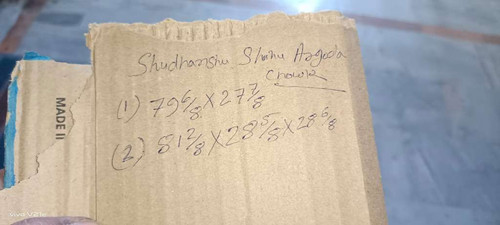 Shudhanshu Shinu Argoda
Chowk
(1) 79 6/8 X 27 7/8
(2) 81 2/8 X 28 5/8 X 28 6/8
MADE II